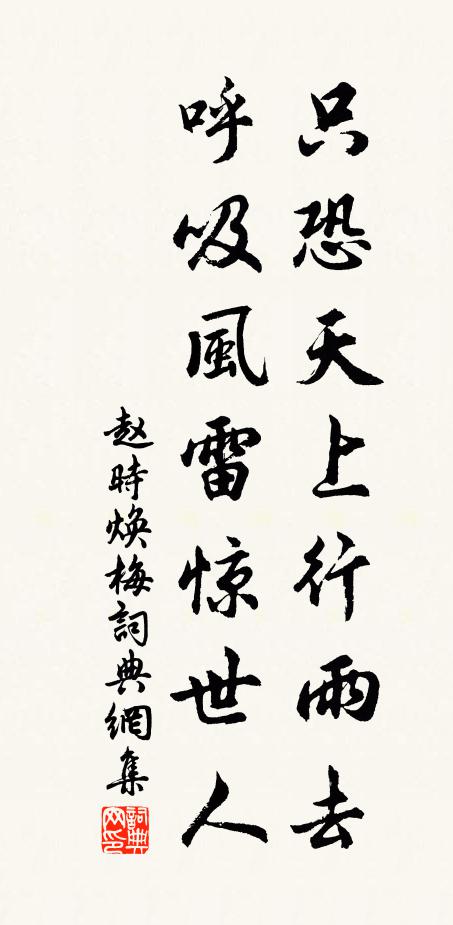 只恐天上行雨去
呼吸風雷惊世人
赵時焕梅詞典網集
詞典网印